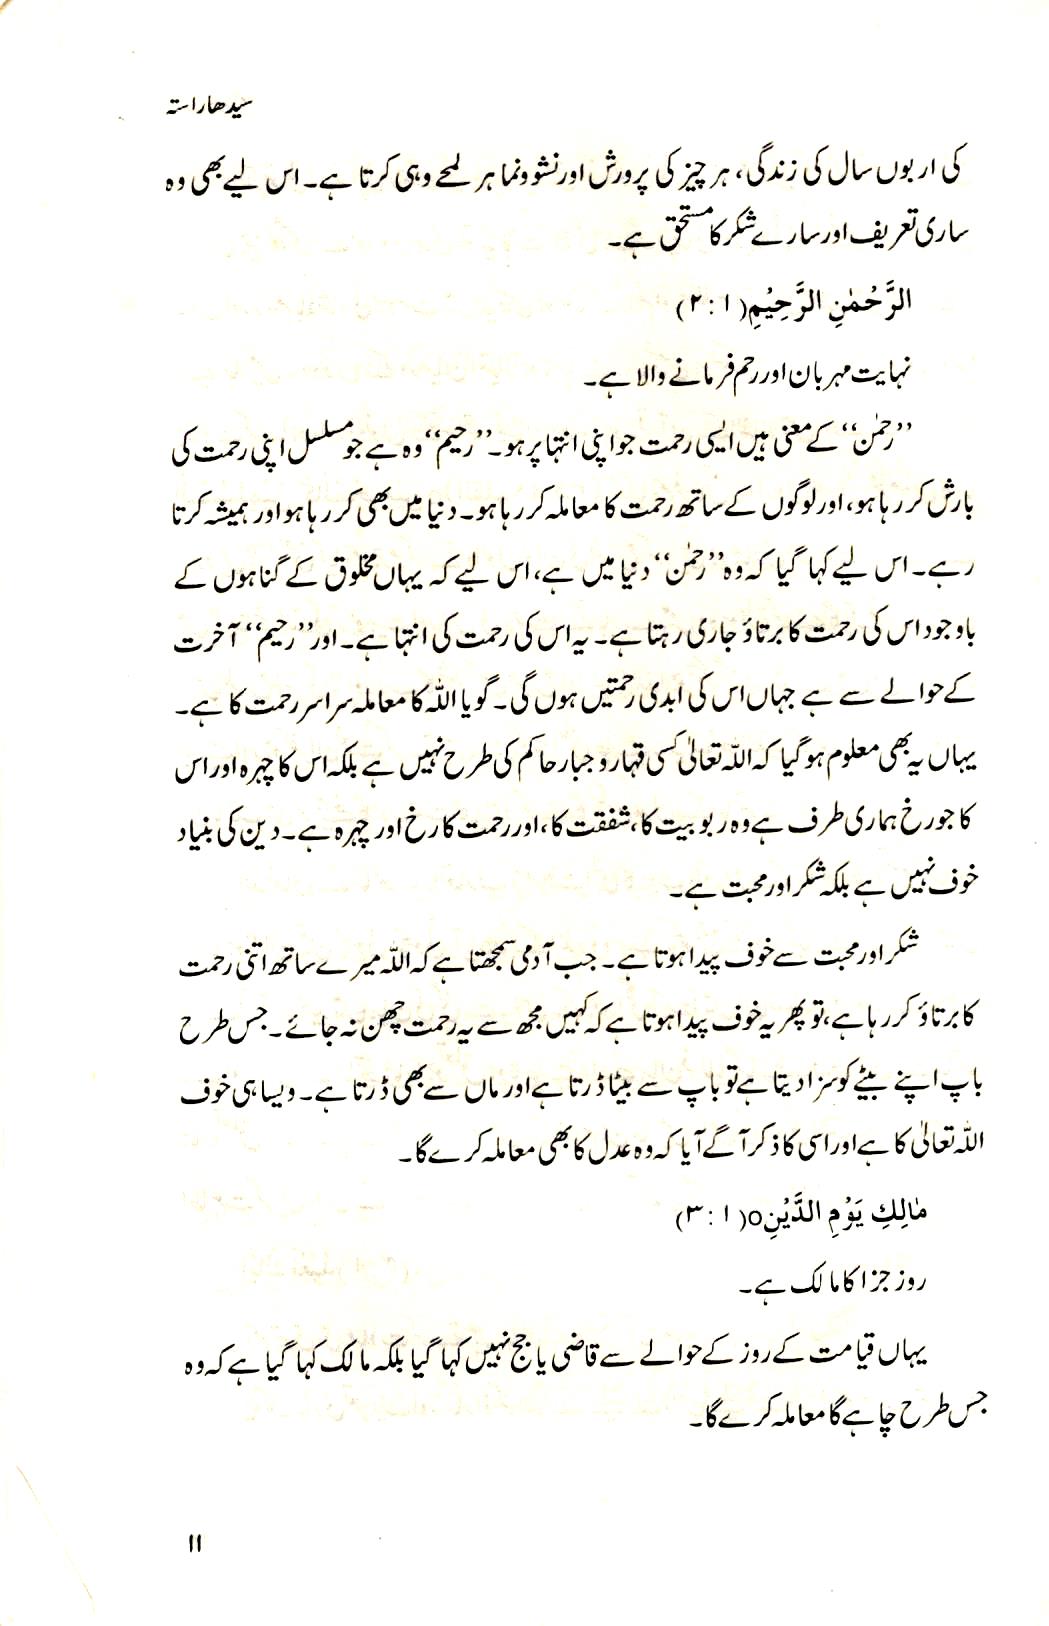 سیدھا راستہ
کی اربوں سال کی زندگی، ہر چیز کی پرورش اور نشوونما ہر لمحے وہی کرتا ہے۔ اس لیے بھی وہ
ساری تعریف اور سارے شکر کا مستحق ہے۔
الرَّحْمٰنِ الرَّحِیْمِ(۱ :۲)
نہایت مہربان اور رحم فرمانے والا ہے۔
’’رحمٰن‘‘ کے معنی ہیں ایسی رحمت جو اپنی انتہا پر ہو۔ ’’رحیم‘‘ وہ ہے جو مسلسل اپنی رحمت کی
بارش کر رہا ہو، اور لوگوں کے ساتھ رحمت کا معاملہ کر رہا ہو۔ دنیا میں بھی کر رہا ہو اور ہمیشہ کرتا
رہے۔ اس لیے کہا گیا کہ وہ ’’رحمٰن‘‘ دنیا میں ہے، اس لیے کہ یہاں مخلوق کے گناہوں کے
باوجود اس کی رحمت کا برتاؤ جاری رہتا ہے۔ یہ اس کی رحمت کی انتہا ہے۔ اور ’’رحیم‘‘ آخرت
کے حوالے سے ہے جہاں اس کی ابدی رحمتیں ہوں گی۔ گویا اللہ کا معاملہ سراسر رحمت کا ہے۔
یہاں یہ بھی معلوم ہو گیا کہ اللہ تعالیٰ کسی قہار و جبار حاکم کی طرح نہیں ہے بلکہ اس کا چہرہ اور اس
کا جو رخ ہماری طرف ہے وہ ربوبیت کا، شفقت کا، اور رحمت کا رخ اور چہرہ ہے۔ دین کی بنیاد
خوف نہیں ہے بلکہ شکر اور محبت ہے۔
شکر اور محبت سے خوف پیدا ہوتا ہے۔ جب آدمی سمجھتا ہے کہ اللہ میرے ساتھ اتنی رحمت
کا برتاؤ کر رہا ہے، تو پھر یہ خوف پیدا ہوتا ہے کہ کہیں مجھ سے یہ رحمت چھن نہ جائے۔ جس طرح
باپ اپنے بیٹے کو سزا دیتا ہے تو باپ سے بیٹا ڈرتا ہے اور ماں سے بھی ڈرتا ہے۔ ویسا ہی خوف
اللہ تعالیٰ کا ہے اور اسی کا ذکر آگے آیا کہ وہ عدل کا بھی معاملہ کرے گا۔
مٰالِکِ یَوْمِ الدَّیْنِo(۱ :۳)
روز جزا کا مالک ہے۔
یہاں قیامت کے روز کے حوالے سے قاضی یا جج نہیں کہا گیا بلکہ مالک کہا گیا ہے کہ وہ
جس طرح چاہے گا معاملہ کرے گا۔
۱۱